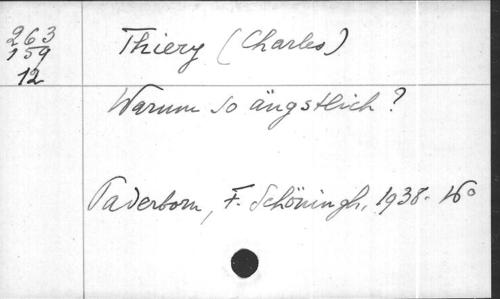 263
159
12
Thiery (Charles)
Warum so ängstlich?
Paderborn, F. Schöningh, 1938. 16°